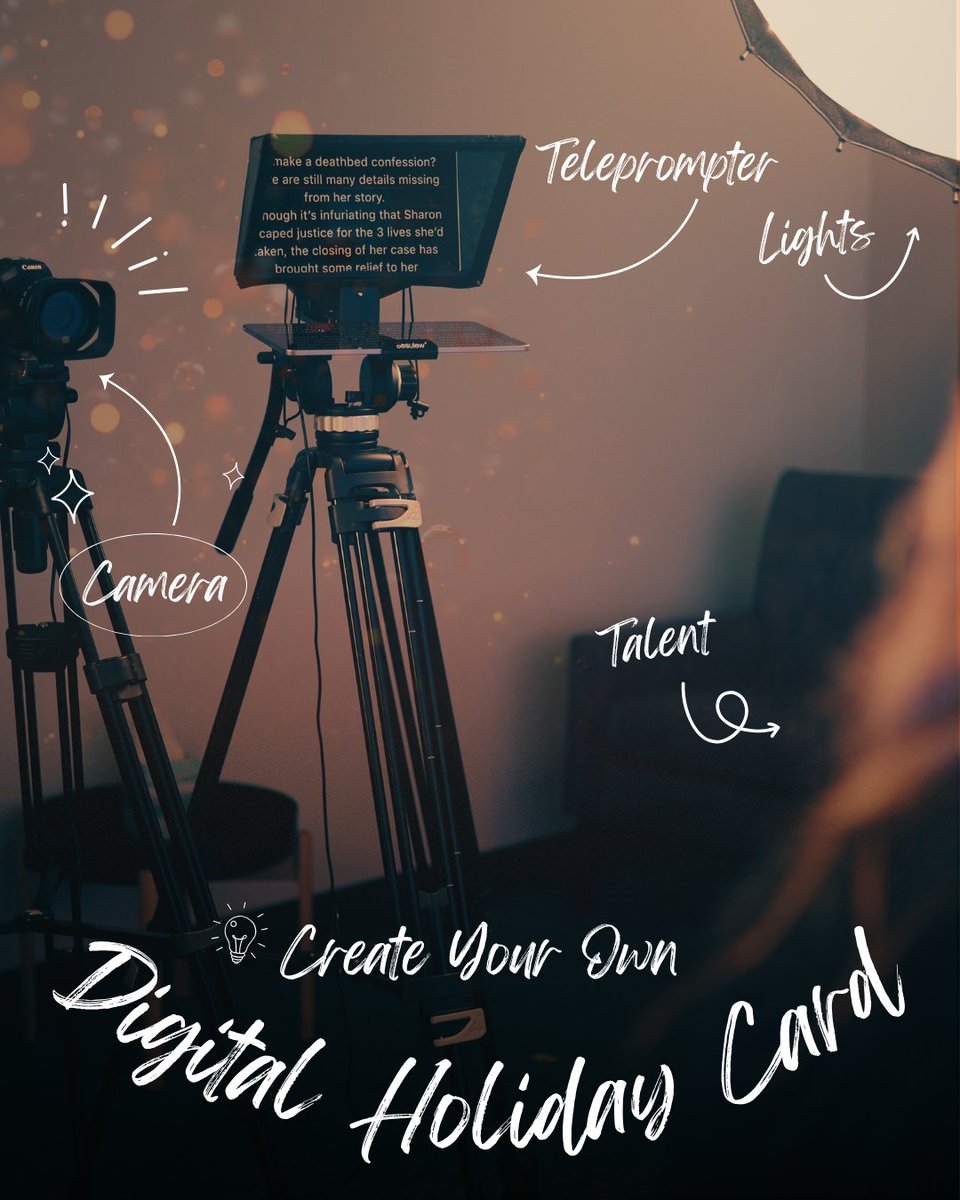 make a deathbed confession?
e are still many details missing
from her story.
hough it's infuriating that Sharon
caped justice for the 3 lives she'd
taken, the closing of her case has
brought some relief to her
Teleprompter
Lights
Canon
desview
Camera
Talent
Create Your Own
Digital Holiday Card